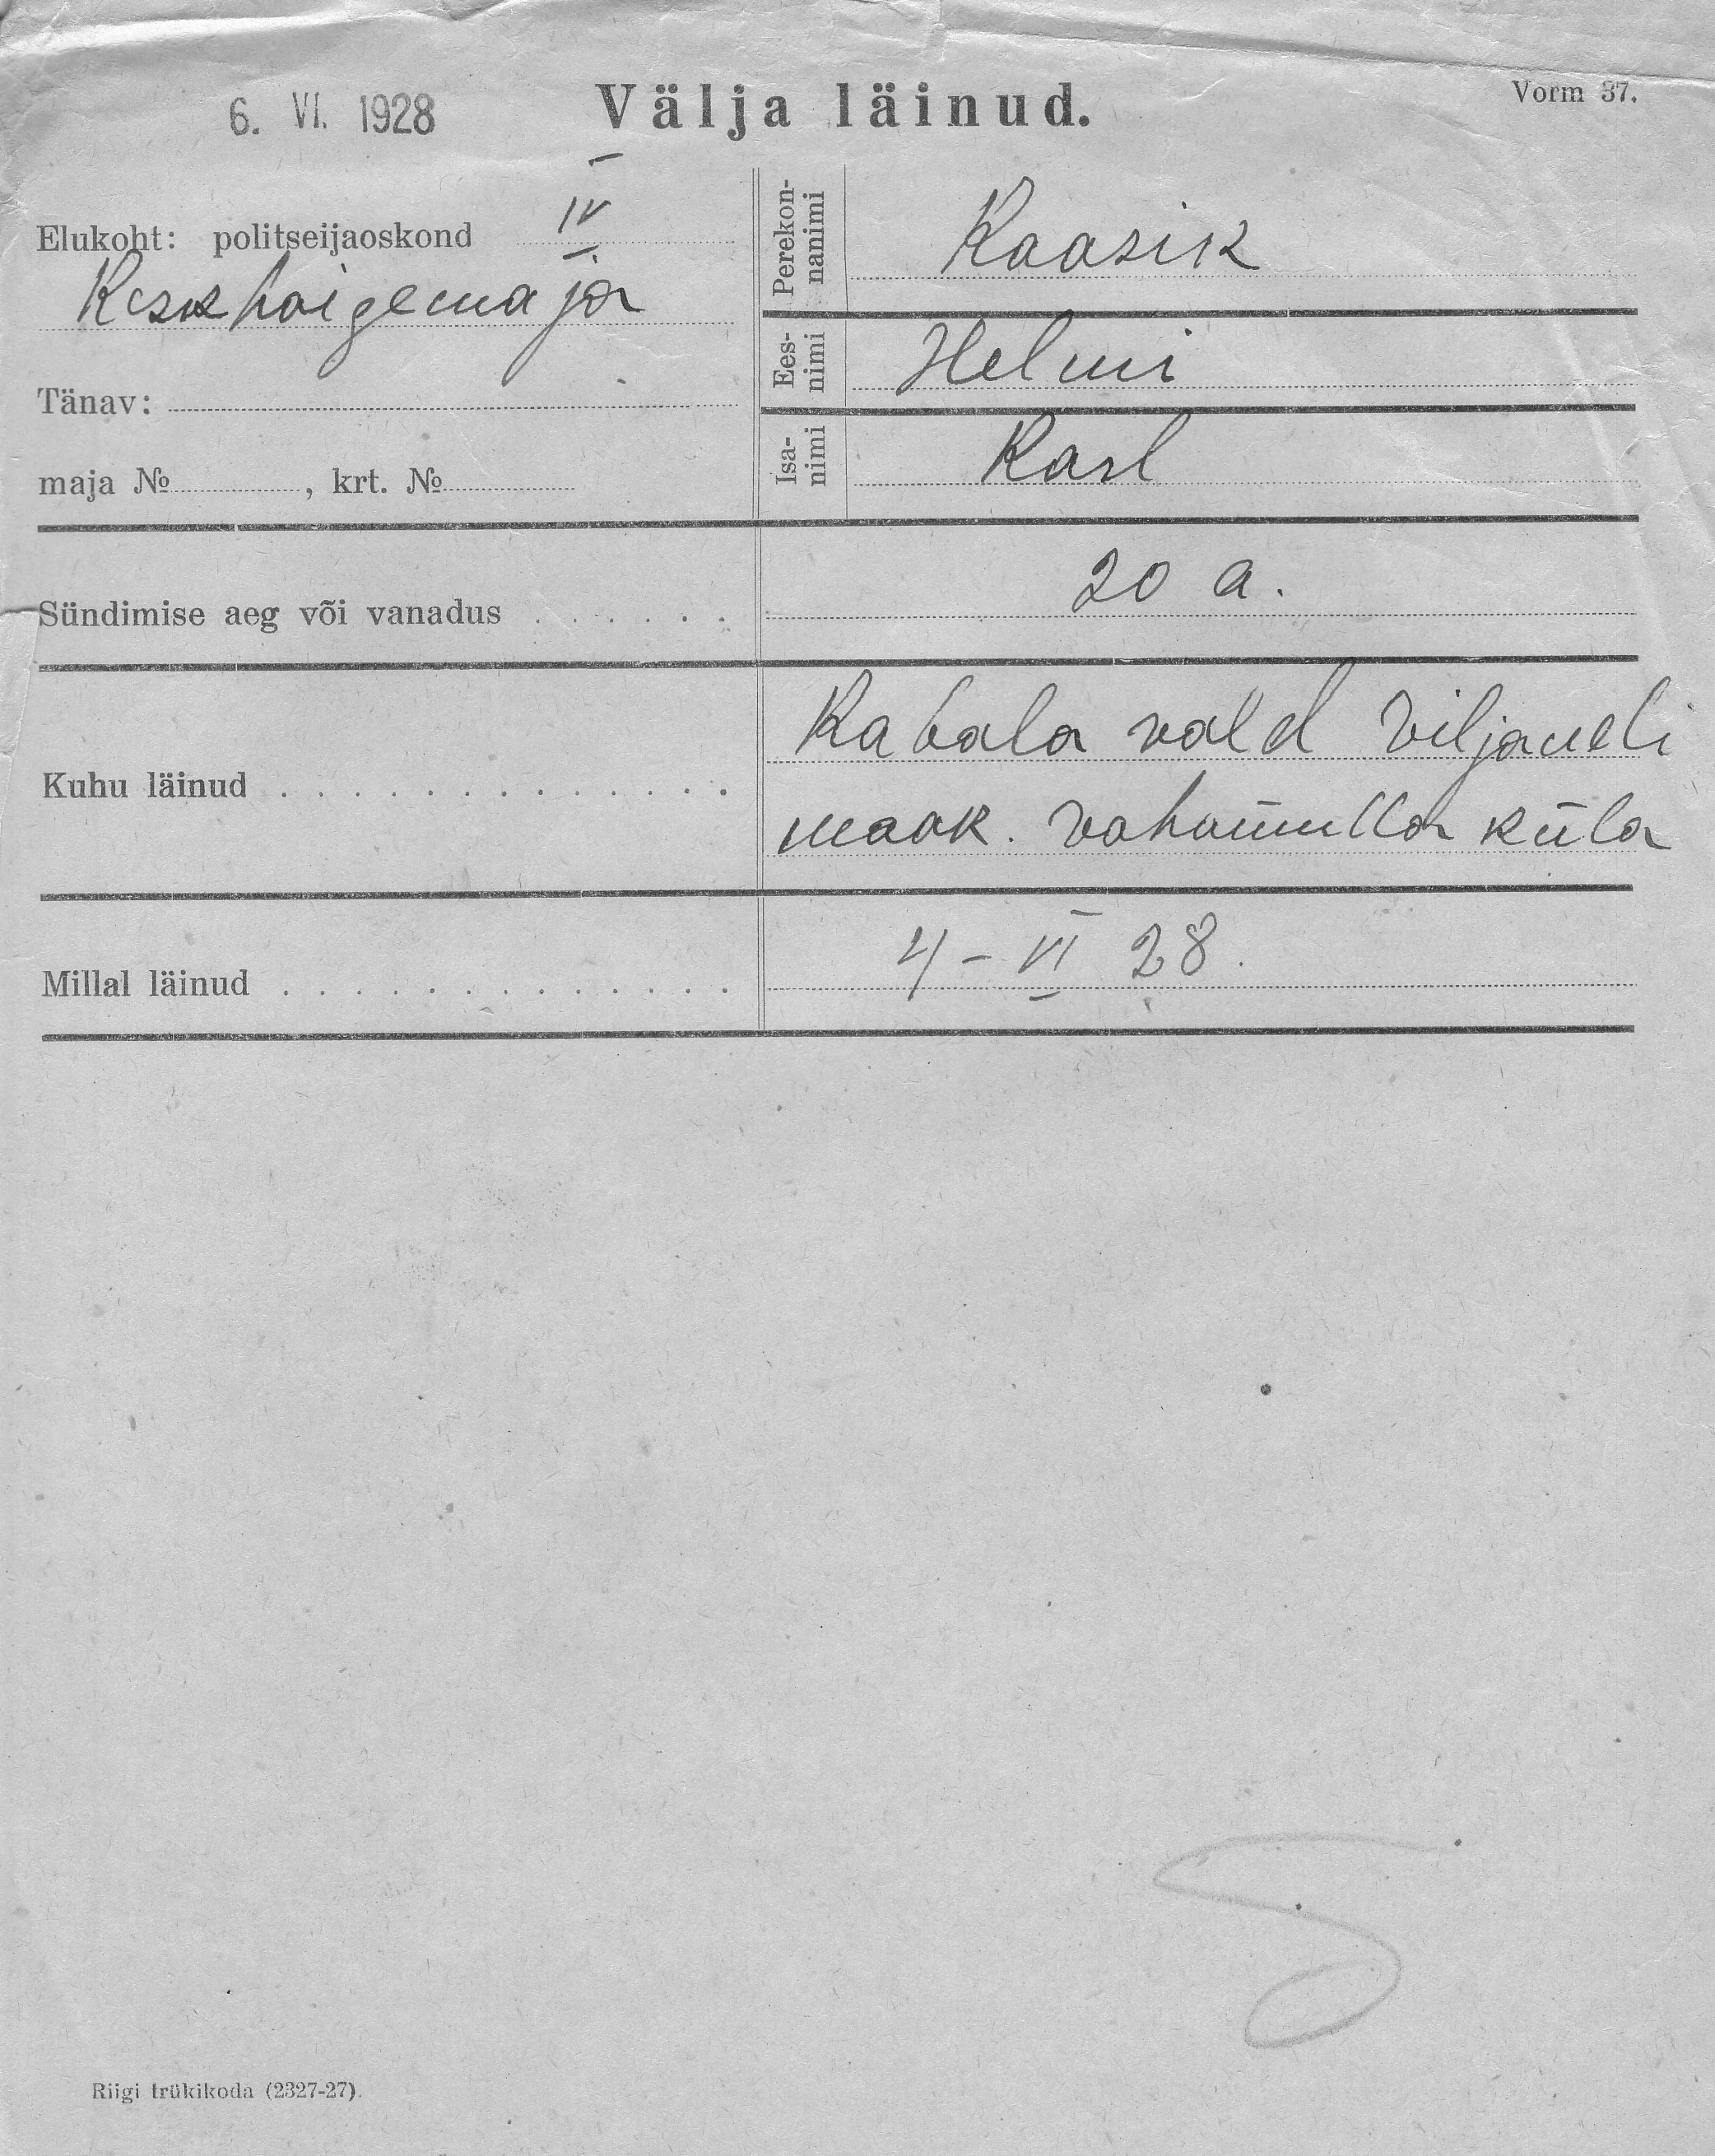 6. VI. 1928
Välja läinud.
Vorm 37.
Elukoht: politseijaoskond IV
Keskhaigemaja
Tänav:
maja №, krt. №
Perekonnanimi Kaasik
Eesnimi Helmi
Isanimi Karl
Sündimise aeg või vanadus 20 a.
Kuhu läinud Kabala vald Viljandi
maak. küla
Millal läinud 4 - VI 28.
Riigi trükikoda (2327-27).